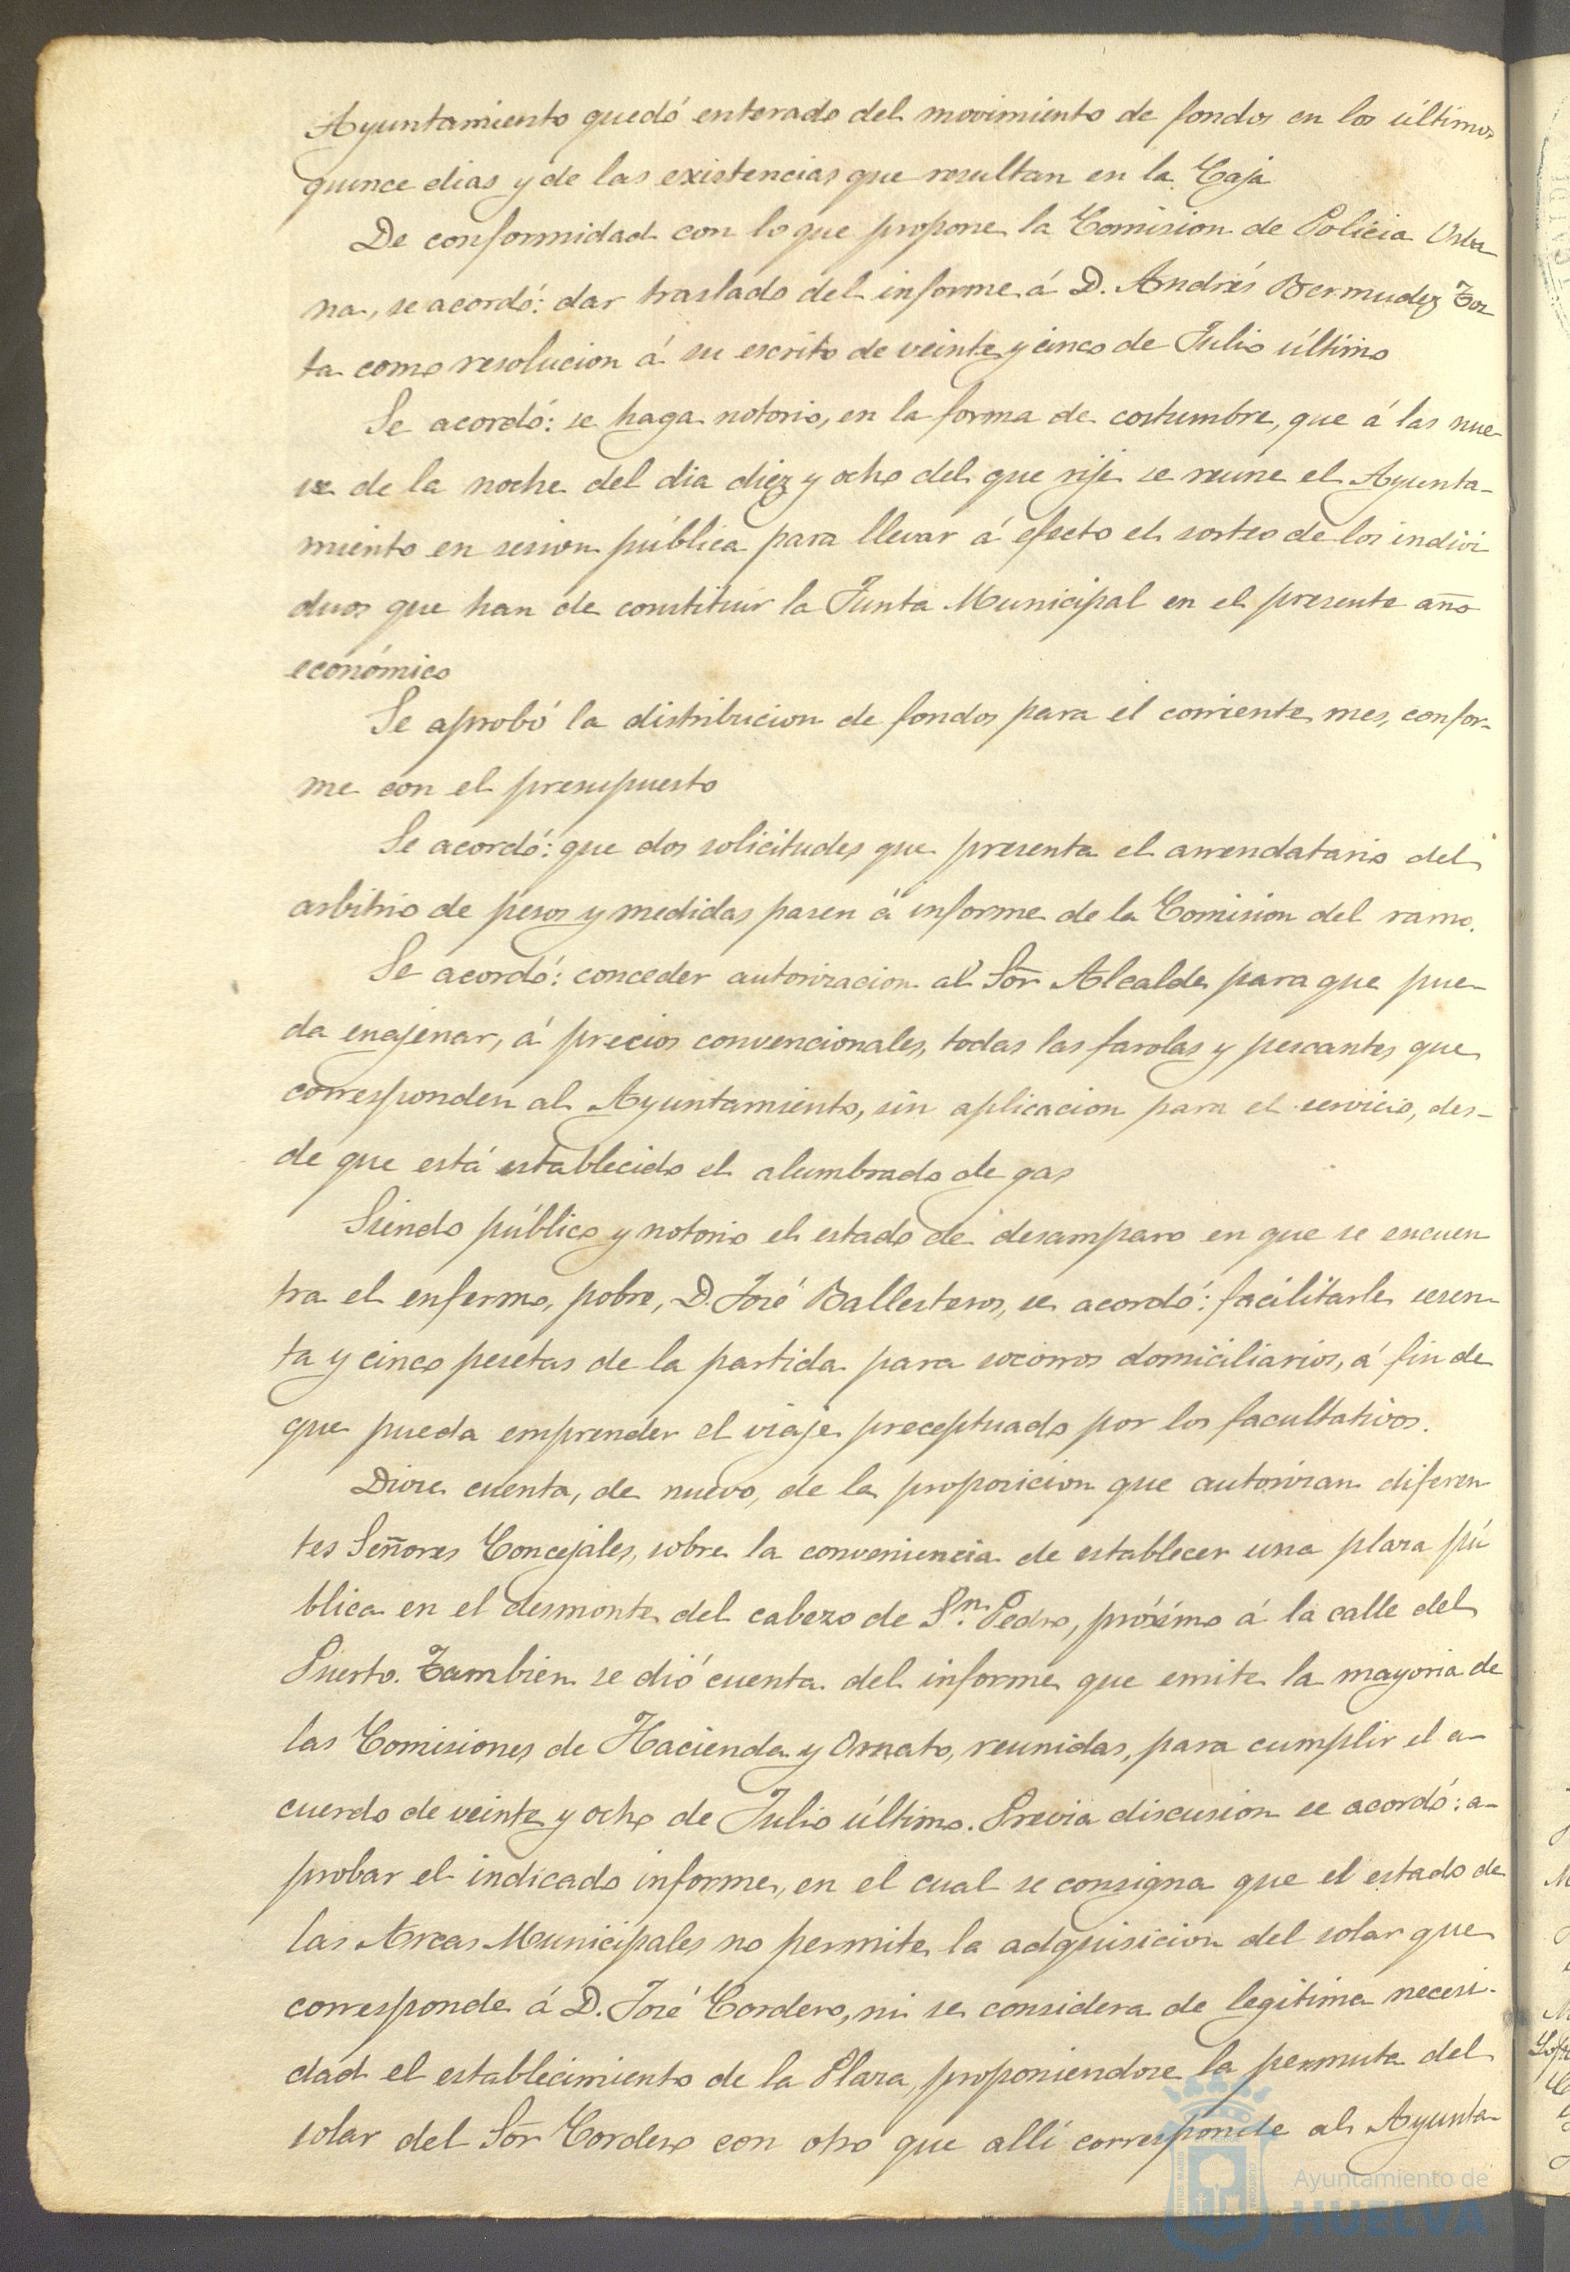 Ayuntamiento quedó enterado del movimiento de fondos en los últimos
quince dias y de las existencias que resultan en la Caja
De conformidad con lo que propone la Comision de Policia Urba
na, se acordó: dar traslado del informe á D. Andrés Bermudez Tor
ta como resolucion á su escrito de veinte y cinco de Julio último
Se acordó: se haga notorio, en la forma de costumbre, que á las nue-
ve de la noche del dia diez y ocho del que rije se reune el Ayunta-
miento en sesion pública para llevar á efecto el sorteo de los indivi
duos que han de constituir la Junta Municipal en el presente año
económico
Se aprobó la distribucion de fondos para el corriente mes, confor-
me con el presupuesto
Se acordó: que dos solicitudes que presenta el arrendatario del
arbitrio de pesos y medidas pasen á informe de la Comision del ramo.
Se acordó: conceder autorizacion al Sor Alcalde para que pue-
da enajenar, á precios convencionales, todas las farolas y pescantes que
corresponden al Ayuntamiento, sin aplicacion para el servicio, des-
de que está establecido el alumbrado de gas
Siendo público y notorio el estado de desamparo en que se encuen
tra el enfermo, pobre, D. José Ballesteros, se acordó: facilitarle sesen
ta y cinco pesetas de la partida para socorros domiciliarios, á fin de
que pueda emprender el viaje preceptuado por los facultativos.
Diose cuenta, de nuevo, de la proposicion que autorizan diferen
tes Señores Concejales, sobre la conveniencia de establecer una plaza pú
blica en el desmonte del cabezo de Sn. Pedro, próximo á la calle del
Puerto. Tambien se dió cuenta del informe que emite la mayoria de
las Comisiones de Hacienda y Ornato, reunidas, para cumplir el a-
cuerdo de veinte y ocho de Julio último. Previa discusion se acordó: a-
probar el indicado informe, en el cual se consigna que el estado de
las Arcas Municipales no permite la adquisicion del solar que
corresponde á D. José Cordero, ni se considera de legitima necesi-
dad el establecimiento de la Plaza, proponiendose la permuta del
solar del Sor Cordero con otro que allí corresponde al Ayunta-
Ayuntamiento de
HUELVA